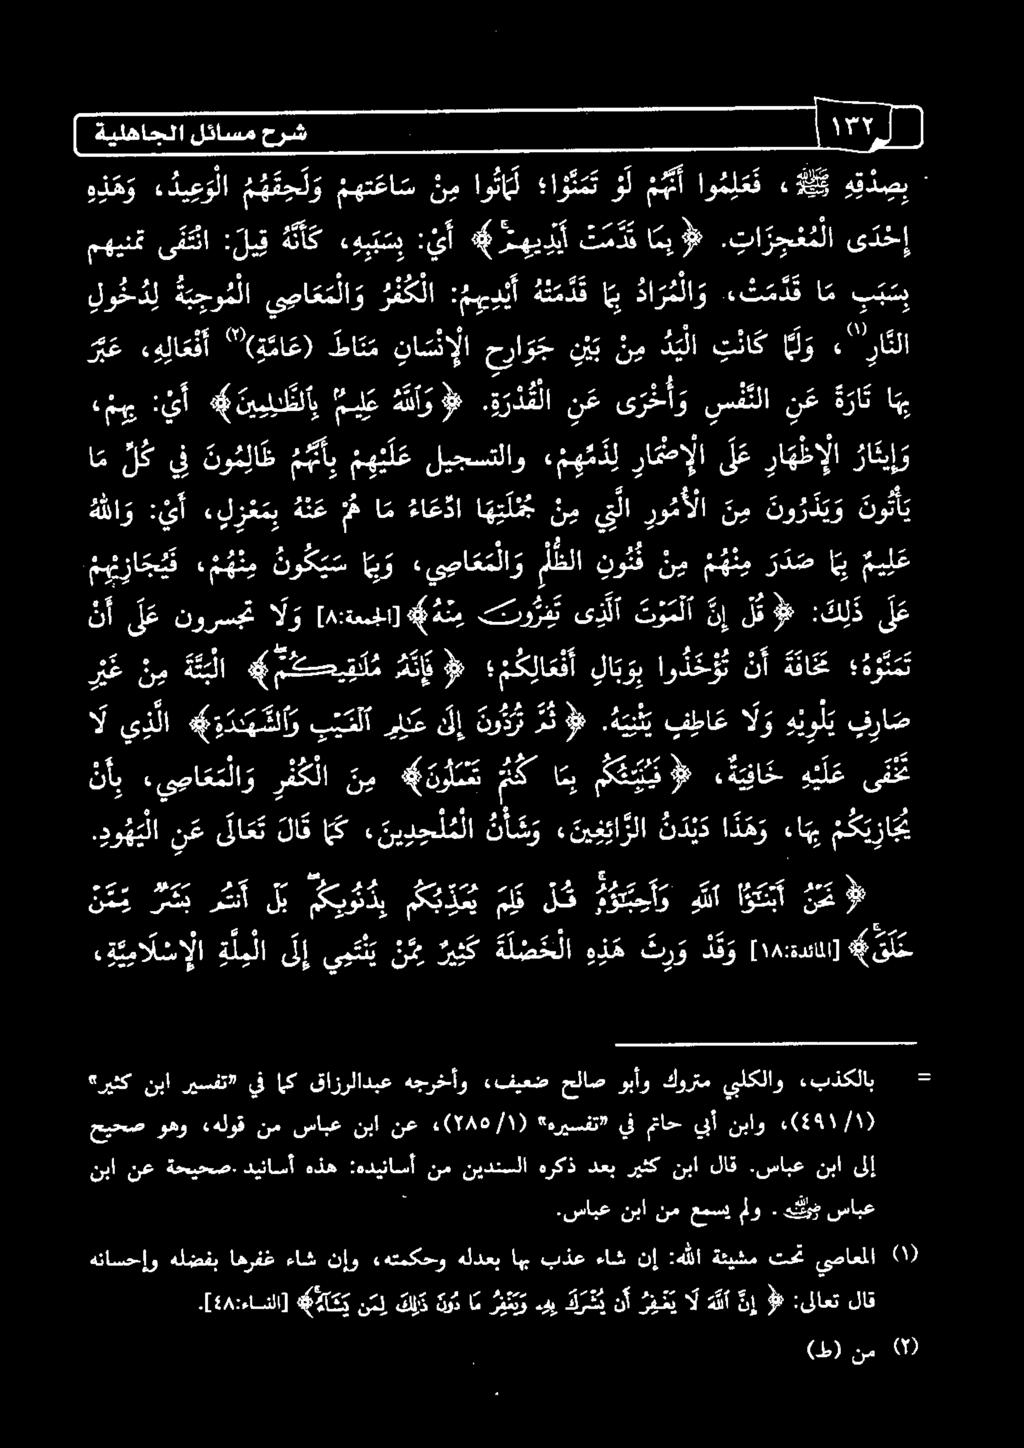 ١٣٢
شرح مسائل الجاهلية
بِصِدْقِهِ ﷺ، فَعَلِمُوا أَنَّهُمْ لَوْ تَمَنَّوْا؛ لَمَاتُوا مِنْ سَاعَتِهِمْ وَلَحِقَهُمُ الْوَعِيدُ، وَهَذِهِ
إِحْدَى الْمُعْجِزَاتِ. ﴿بِمَا قَدَّمَتْ أَيْدِيهِمْ﴾ أَيْ: بِسَبَبِهِ، كَأَنَّهُ قِيلَ: انْتَفَى تمنيهم
بِسَبَبِ مَا قَدَّمَتْ، وَالْمُرَادُ بِمَا قَدَّمَتْهُ أَيْدِيهِمْ: الْكُفْرُ وَالْمَعَاصِي الْمُوجِبَةُ لِدُخُولِ
النَّارِ(١)، وَلَمَّا كَانَتِ الْيَدُ مِنْ بَيْنِ جَوَارِحِ الْإِنْسَانِ مَنَاطَ (عَامَّةِ)(٢) أَفْعَالِهِ، عَبَّرَ
بِهَا تَارَةً عَنِ النَّفْسِ وَأُخْرَى عَنِ الْقُدْرَةِ. ﴿وَاللَّهُ عَلِيمٌ بِالظَّالِمِينَ﴾ أَيْ: بِهِمْ،
وَإِيثَارُ الْإِظْهَارِ عَلَى الْإِضْمَارِ لِذَمِّهِمْ، والتسجيل عَلَيْهِمْ بِأَنَّهُمْ ظَالِمُونَ فِي كُلِّ مَا
يَأْتُونَ وَيَذَرُونَ مِنَ الْأُمُورِ الَّتِي مِنْ جُمْلَتِهَا ادِّعَاءُ مَا هُمْ عَنْهُ بِمَعْزِلٍ، أَيْ: وَاللهُ
عَلِيمٌ بِمَا صَدَرَ مِنْهُمْ مِنْ فُنُونِ الظُّلْمِ وَالْمَعَاصِي، وَبِمَا سَيَكُونُ مِنْهُمْ، فَيُجَازِيهِمْ
عَلَى ذَلِكَ: ﴿قُلْ إِنَّ الْمَوْتَ الَّذِي تَفِرُّونَ مِنْهُ﴾ [الجمعة:٨] وَلَا تجسرون عَلَى أَنْ
تَمَنَّوْهُ؛ مَخَافَةَ أَنْ تُؤْخَذُوا بِوَبَالِ أَفْعَالِكُمْ؛ ﴿فَإِنَّهُ مُلَاقِيكُمْ﴾ الْبَتَّةَ مِنْ غَيْرِ
صَارِفٍ يَلْوِيهِ وَلَا عَاطِفٍ يَثْنِيَهُ. ﴿ثُمَّ تُرَدُّونَ إِلَى عَالِمِ الْغَيْبِ وَالشَّهَادَةِ﴾ الَّذِي لَا
تَخْفَى عَلَيْهِ خَافِيَةٌ، ﴿فَيُنَبِّئُكُم بِمَا كُنتُمْ تَعْمَلُونَ﴾ مِنَ الْكُفْرِ وَالْمَعَاصِي، بِأَنْ
يُجَازِيَكُمْ بِهَا، وَهَذَا دَيْدَنُ الزَّائِغِينَ، وَشَأْنُ الْمُلْحِدِينَ، كَمَا قَالَ تَعَالَى عَنِ الْيَهُودِ.
﴿نَحْنُ أَبْنَاءُ اللَّهِ وَأَحِبَّاؤُهُ قُلْ فَلِمَ يُعَذِّبُكُم بِذُنُوبِكُم بَلْ أَنتُم بَشَرٌ مِّمَّنْ
خَلَقَ﴾ [المائدة:١٨] وَقَدْ وَرِثَ هَذِهِ الْخَصْلَةَ كَثِيرٌ مِمَّنْ يَنْتَمِي إِلَى الْمِلَّةِ الْإِسْلَامِيَّةِ،
= بالكذب، والكلبي متروك وأبو صالح ضعيف، وأخرجه عبدالرزاق كما في «تفسير ابن كثير»
(٤٩١/١)، وابن أبي حاتم في «تفسيره» (٢٨٥/١)، عن ابن عباس من قوله، وهو صحيح
إلى ابن عباس. قال ابن كثير بعد ذكره السندين من أسانيده: هذه أسانيد صحيحة عن ابن
عباس رضي الله عنه. ولم يسمع من ابن عباس.
(١) المعاصي تحت مشيئة الله: إن شاء عذب بها بعدله وحكمته، وإن شاء غفرها بفضله وإحسانه
قال تعالى: ﴿إِنَّ اللَّهَ لَا يَغْفِرُ أَن يُشْرَكَ بِهِ وَيَغْفِرُ مَا دُونَ ذَلِكَ لِمَن يَشَاءُ﴾ [النساء:٤٨].
(٢) من (ط)